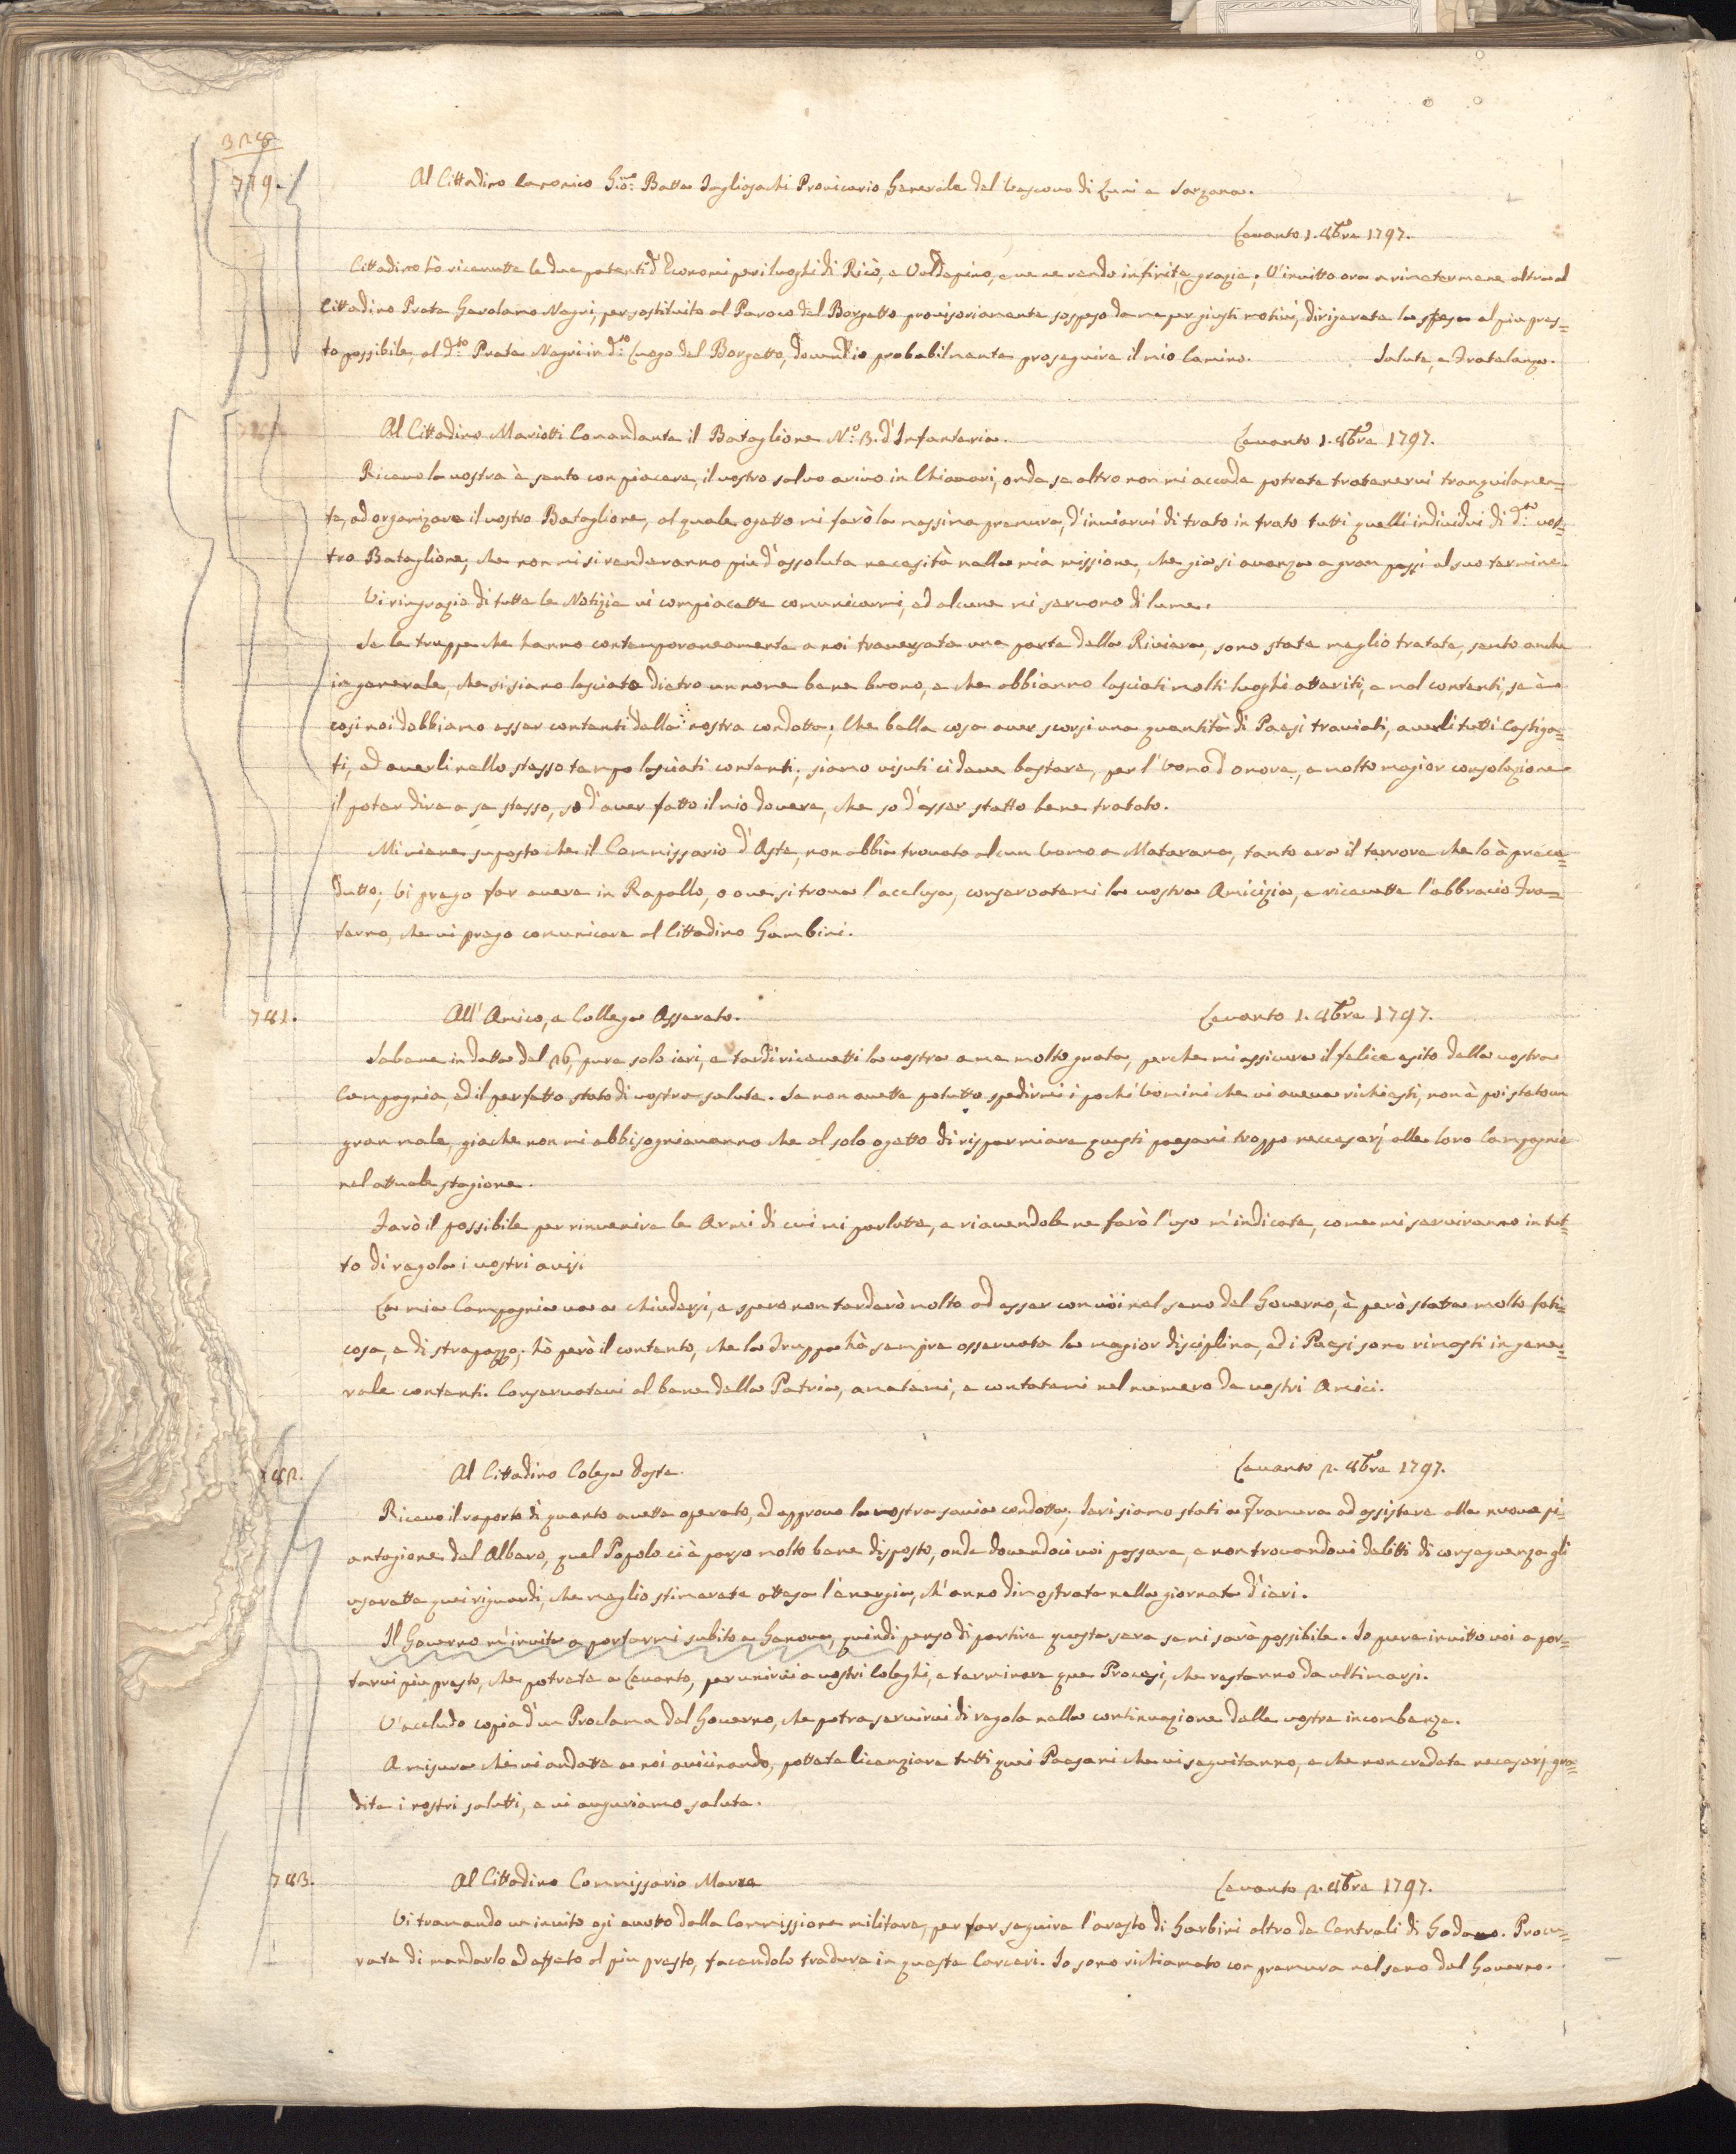 328
779.
Al Cittadino Canonico Gio: Batta Ingliosachi Provicario Generale del Vescovo di Luni e Sarzana.
Levanto 1. 8bre 1797.
Cittadino hò ricevutte le due patenti d'Economi per i luoghi di Ricò, e Valdepino, e ve ne rendo infinite grazie; V'invitto ora a rimetermene altra al
Cittadino Prete Gerolamo Negri, per sostituito al Paroco del Borgetto provisoriamente sospeso da me per giusti motivi, dirigerete la stessa al più pres=
to possibile, al d.to Prete Negri in d.o Luogo del Borgetto, dovend'io probabilmente proseguire il mio Camino. Salute, e Fratelanza.
Al Cittadino Mariotti Comandante il Bataglione N.o 3. d'Infanteria.
Levanto 1. 8bre 1797.
Ricevo la vostra è sento con piacere, il vostro salvo arivo in Chiavari, onde se altro non mi accade potrete tratenervi tranquilamen=
te, ad organizare il vostro Bataglione, al quale ogetto mi farò la massima premura, d'inviarvi di trato in trato tutti quelli individui di d.to vos=
tro Bataglione, che non mi si renderanno più d'assoluta necesità nella mia missione, che già si avanza a gran passi al suo termine.
Vi ringrazio di tutte le Notizie vi compiacette comunicarmi, ed alcune mi servono di lume.
Se le truppe che hanno contemporaneamente a noi traversata una parte della Riviera, sono state meglio tratate, sento anche
in generale, che si siano lasciate dietro un nome bene buono, e che abbianno lasciati molti luoghi atteriti, e mal contenti, se è
così noi dobbiamo esser contenti della nostra condotta; Che bella cosa aver scorsi una quantità di Paesi traviati, averli tutti Castiga=
ti, ed averli nello stesso tempo lasciati contenti; siamo visuti ci deve bastare, per l'Uomo d'onore, e molto magior consolazione
il poter dire a se stesso, so d'aver fatto il mio dovere, che so d'esser statto bene tratato.
Mi viene suposto che il Commissario d'Aste, non abbia trovato alcun Uomo a Matarana, tanto era il terrore che lo à prece=
dutto; Vi prego far avere in Rapallo, o ove si trova l'acclusa, conservatemi la vostra Amicizia, e ricevette l'abbracio Fra=
terno, che vi prego comunicare al Cittadino Gambini.
781.
All'Amico, e Collega Assereto.
Levanto 1. 8bre 1797.
Sebene in datta del 26, pure solo ieri, e tardi ricevetti la vostra a me molto grata, perche mi assicura il felice esito della vostra
Campagnia, ed il perfetto stato di vostra salute. Se non avette potutto spedirmi i pochi Uomini che vi aveva richiesti, non è poi stato un
gran male, giache non mi abbisognavanno che al solo ogetto di risparmiare questi paesani troppo neccesarj alle loro Campagnie
nel attuale stagione.
Farò il possibile per rinvenire le Armi di cui mi parlatte, e riavendole ne farò l'uso m'indicate, come mi serviranno in tut=
to di regola i vostri avisi
La mia Campagnia va a chiudersi, e spero non tarderò molto ad esser con voi nel seno del Governo, è però stata molto fati=
cosa, e di strapazzo, hò però il contento, che la Truppa hà sempre osservata la magior disciplina, ed i Paesi sono rimasti in gene=
rale contenti. Conservatevi al bene della Patria, amatemi, e contatemi nel numero de vostri Amici.
782.
Al Cittadino Colega d'Aste.
Levanto 2. 8bre 1797.
Ricevo il raporto di quanto avette operato, ed approvo la vostra savia condotta; Ieri siamo stati a Framura ad assistere alla nuova pi=
antazione del Albero, quel Popolo ci è parso molto bene disposto, onde dovendoci voi passare, e non trovandovi delitti di conseguenza gli
userette quei riguardi, che meglio stimerete attesa l'energia, ch'anno dimostrata nella giornata d'ieri.
Il Governo m'invita a portarmi subito a Genova, quindi penso di partire questa sera se mi sarà possibile. Io pure invitto voi a por=
tarvi più presto, che potrete a Levanto, per unirvi a vostri Coleghi, e terminare que Procesi, che restanno da ultimarsi.
V'accludo copia d'un Proclama del Governo, che potra servirvi di regola nella continuazione delle vostre incombenze.
A misura che vi andatte a noi avicinando, pottete licenziare tutti quei Paesani che vi seguitanno, e che non credete necesarj, gra=
dite i nostri salutti, e vi auguriamo salute.
783.
Al Cittadino Commissario Marre
Levanto 2. 8bre 1797.
Vi tramando un invito ogi avutto dalla Commissione militare, per far seguire l'aresto di Garbini altro de Centrali di Godano. Procu=
rate di mandarlo ad effeto al più presto, facendolo tradure in queste Carceri. Io sono richiamato con premura nel seno del Governo.